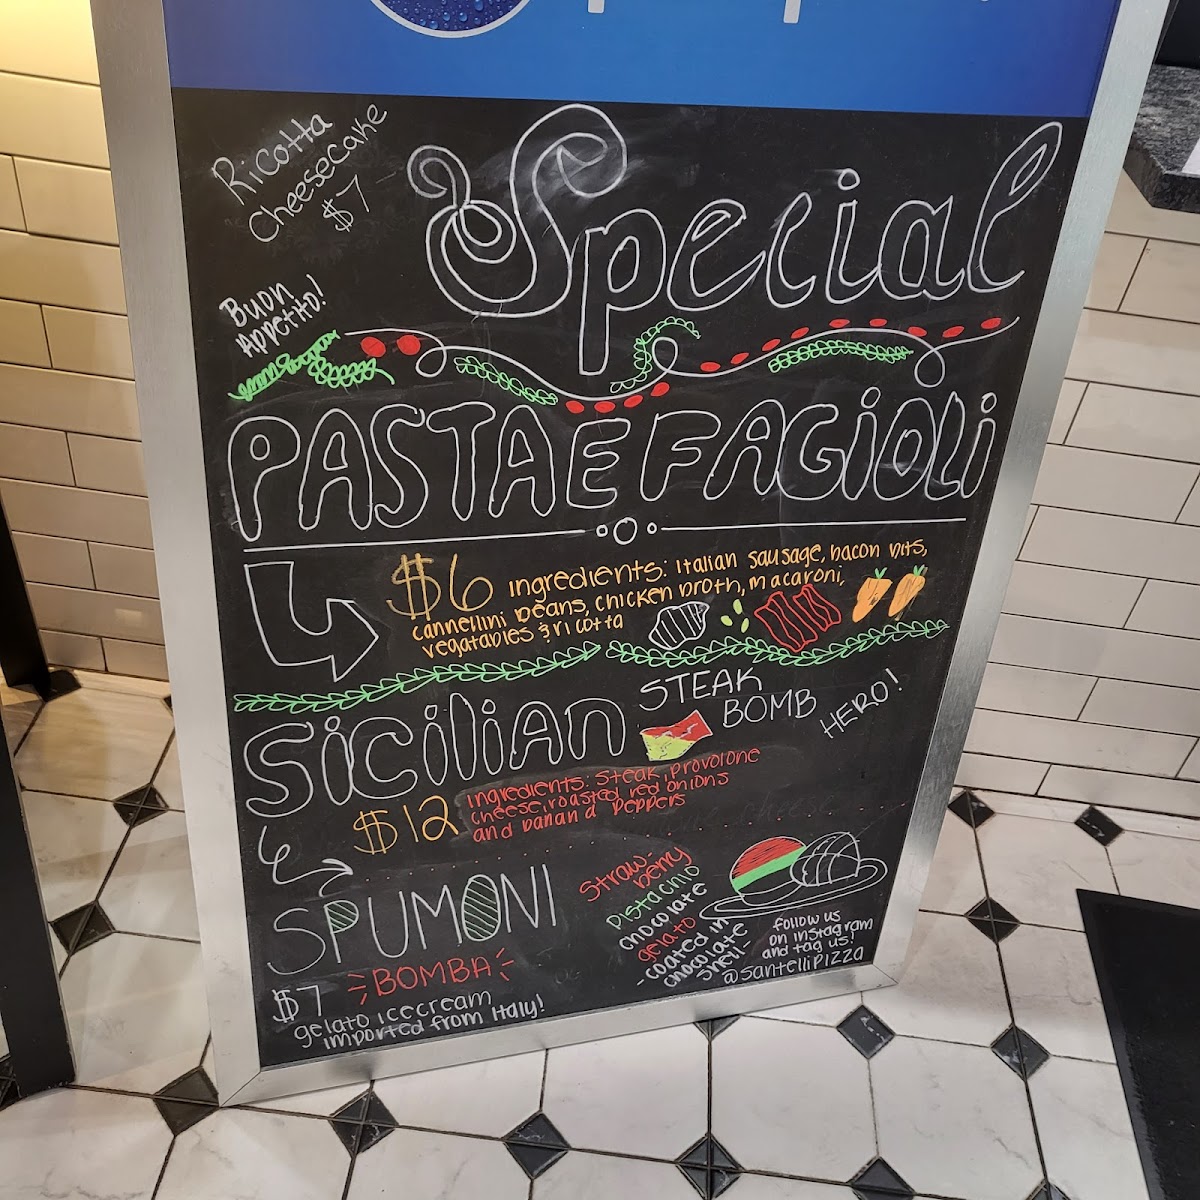 Ricotta
Cheesecake
$7
Special
Buon
Appetito!
PASTA E FAGIOLI
$6 ingredients: Italian sausage, bacon bits,
cannellini beans, chicken broth, macaroni,
vegatables & ricotta
Sicilian
STEAK
BOMB
HERO!
$12
ingredients: steak, provolone
cheese, roasted red onions
and banana peppers
SPUMONI
BOMBA
$7
gelato icecream
imported from Italy!
Straw-
berry
Pistachio
chocolate
gelato
-coated in
chocolate
shell-
follow us
on instagram
and tag us!
@santellipizza